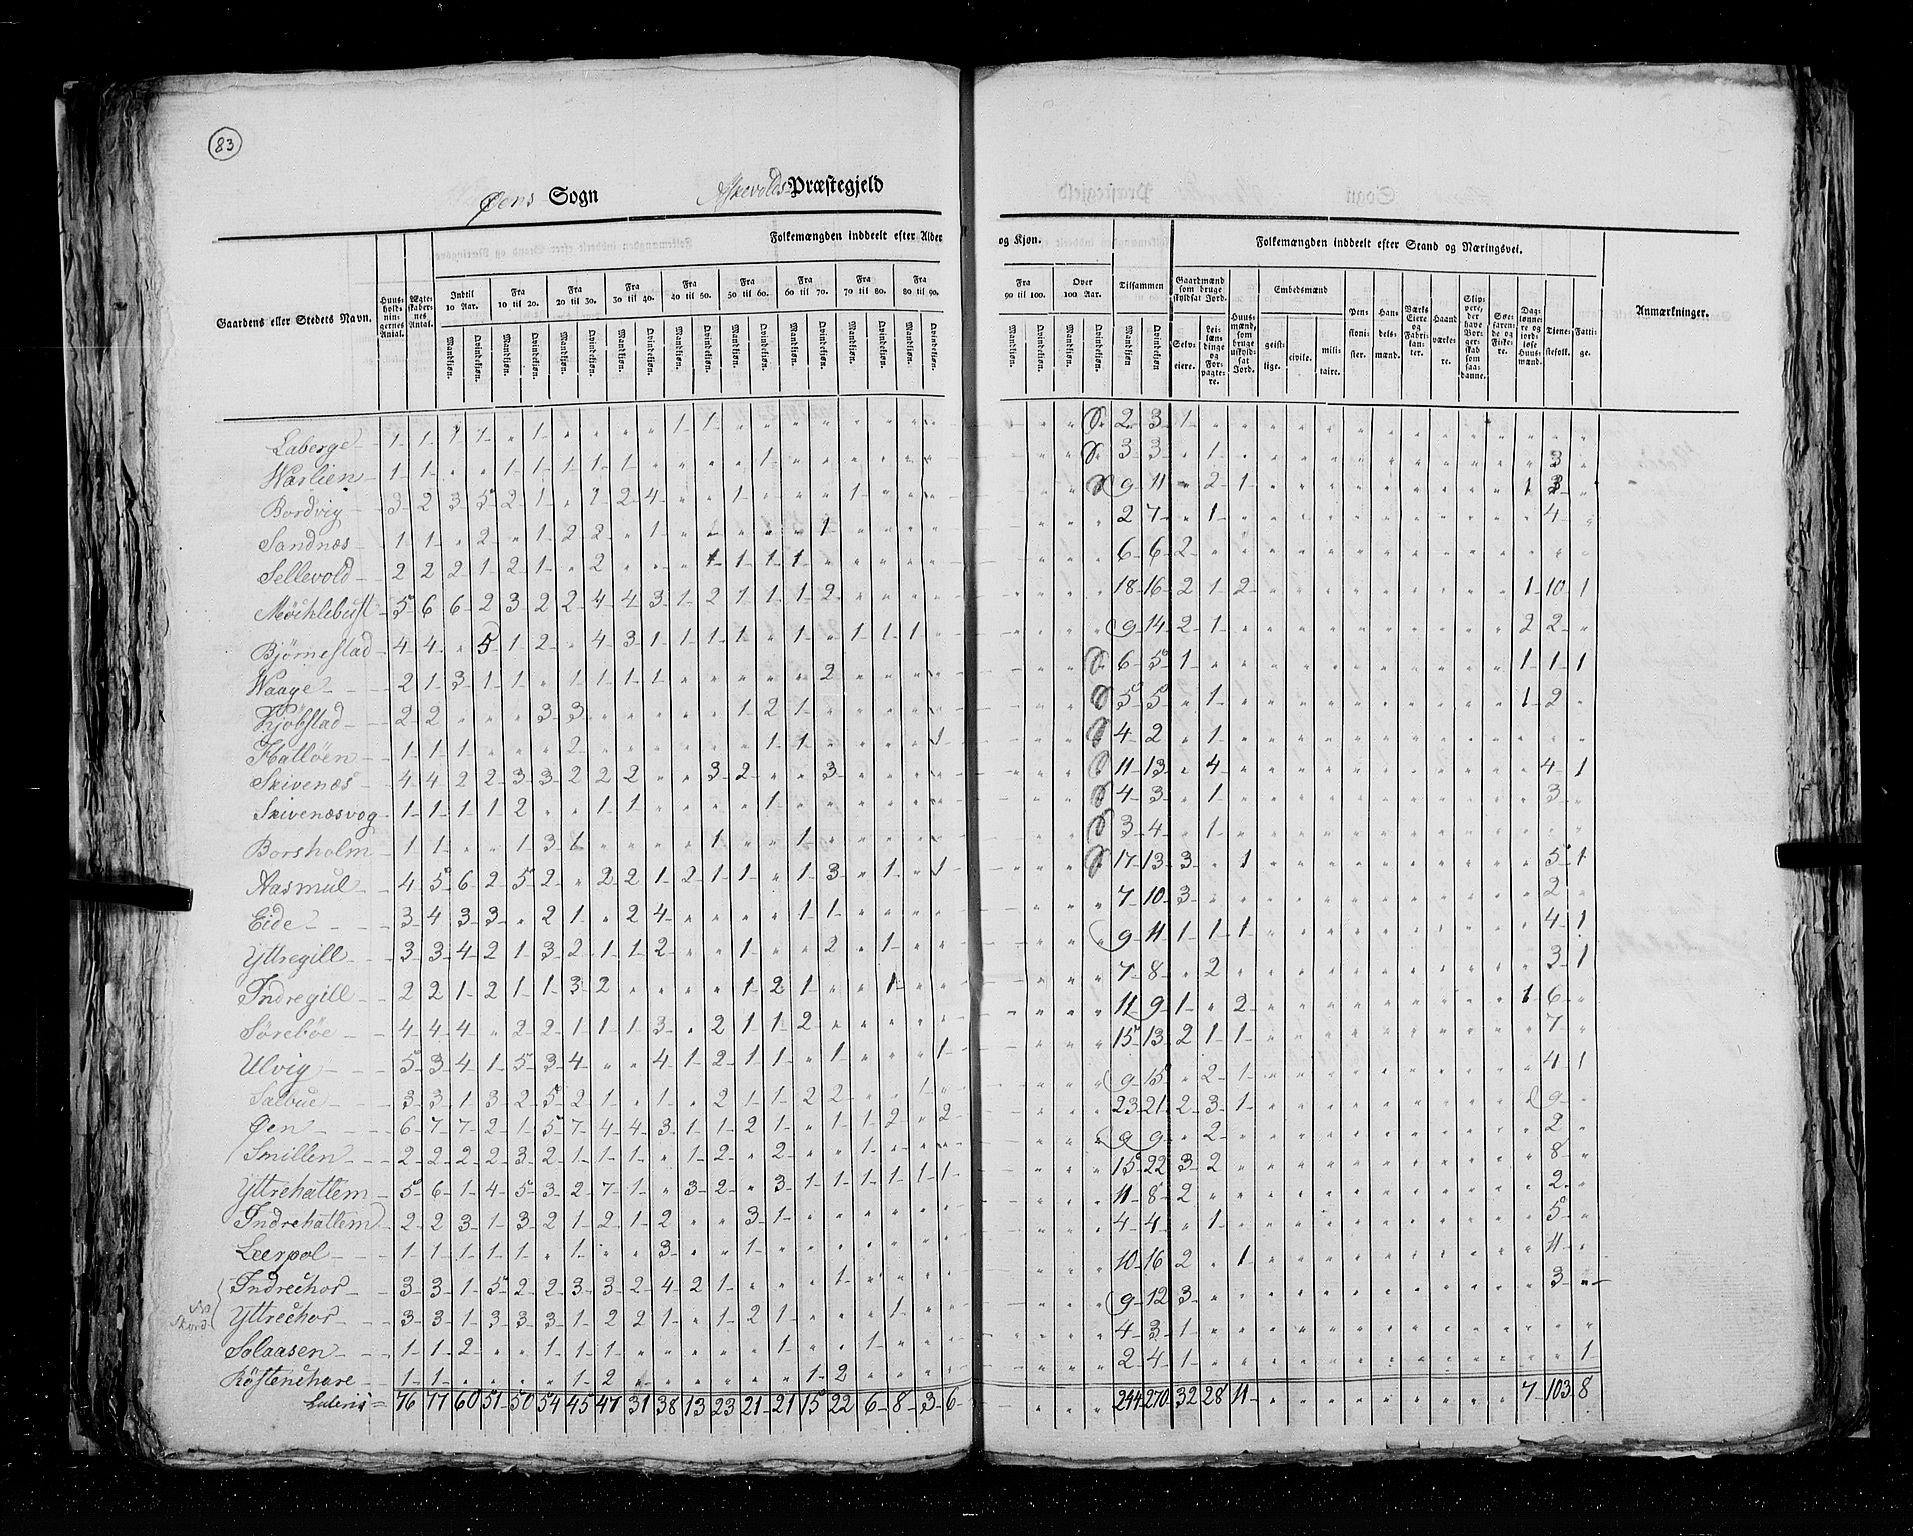 83
Øens Sogn Askevolds Præstegjeld
Folkemængden inddeelt efter Alder og Kjøn.
Folkemængden inddeelt efter Stand og Næringsvei.
Gaardens eller Stedets Navn.
Huus-holdnin-gernes Antal.
Ægte-skaber-nes Antal.
Indtil 10 Aar.
Fra 10 til 20.
Fra 20 til 30.
Fra 30 til 40.
Fra 40 til 50.
Fra 50 til 60.
Fra 60 til 70.
Fra 70 til 80.
Fra 80 til 90.
Fra 90 til 100.
Over 100 Aar.
Tilsammen
Mandkjøn. Qvindekjøn.
Gaardmænd som bruge skyldsat Jord.
Selv-eiere.
Lei-læn-dinge og For-pagte-re.
Huus-mænd, som bruge uskyld-sat Jord.
Embedsmænd
geist-lige. civile. mili-taire.
Pen-sioni-ster.
Han-dels-mænd.
Værks Eiere og Fabri-kan-ter.
Haand værke-re.
Slip-pere, der have Bor-ger-skab som saa-danne.
Søe-faren-de og Fiske-re.
Dag-lønne-re og jord-løse Huus-mænd.
Tiene-stefolk.
Fatti-ge.
Anmærkninger.
Laberge 1 1 1 1 " 1 " " " " 1 1 2 3 1
Warlien 1 1 " " 1 1 1 1 1 " " " " 1 3 3 " 1 3
Bordvig 3 2 3 5 2 1 " 1 2 4 " " 1 " " " 1 9 11 " 2 1 1
Sandnæs 1 1 " 2 " 1 2 2 " 1 2 7 " 1 4
Sellevold 2 2 2 1 2 1 " 2 " " " 1 1 1 1 6 6 2
Møchlebust 5 6 6 2 3 2 2 4 4 3 1 2 1 1 1 2 18 16 2 1 2 1 10 1
Bjørnestad 4 4 " 5 1 2 " 4 3 1 1 1 1 " 1 " 1 1 1 9 14 2 1 2 2
Waage 2 1 3 1 1 " 1 1 1 1 " " " " " 2 6 5 1 1 1 1
Kjøbstad 2 2 " " " 3 3 " " " " " 1 2 1 5 5 " 1 1 2
Hatløen 1 1 1 " " " 2 " " " " " " 1 1 " " " " 1 4 2 " 1
Skivenæs 4 4 2 2 3 3 2 2 2 " " 3 2 " " 3 11 13 " 4 4 1
Skivenæsvog 1 1 1 1 2 " " 1 1 " " " " 1 4 3 " 1 3
Borsholm 1 1 " " 1 3 1 " " " " 1 " " 1 3 4 " 1
Aasmul 4 5 6 2 5 2 " 2 2 1 2 1 1 " 1 3 " 1 " 1 17 13 3 " 1 5 1
Eide 3 4 3 3 " 2 1 " 2 4 " " " " 1 1 7 10 3 2
Yttregill 3 3 4 2 1 3 2 1 1 2 " " 1 " " 2 " 1 9 11 1 1 1 4 1
Indregill 2 2 1 2 1 1 3 2 " " " " 1 2 1 " " 1 7 8 " 2 3 1
Sørebøe 4 4 4 " 2 2 1 1 1 3 " 2 1 1 2 11 9 1 " 2 1 6
Ulvig 5 3 4 1 5 3 4 " " 4 1 2 1 1 " 1 " " " 1 15 13 2 1 1 7
Salbue 3 3 1 3 2 5 2 1 " 1 " 2 1 1 2 2 " " 1 9 15 " 2 1 4 1
Øen 6 7 7 2 1 5 7 4 4 3 1 1 2 1 " 1 1 2 " 2 23 21 2 3 1 9
Smillen 2 2 2 2 3 2 1 1 1 " 1 2 " 2 " " 1 9 9 " 2 2
Yttrehatlem 5 6 1 4 5 3 2 7 1 " 3 2 " 3 1 1 1 1 1 1 15 22 3 2 8
Indrehatlem 2 2 3 1 3 2 1 2 1 2 " " 3 1 11 8 2 2
Leerpol 1 1 1 1 1 " 1 " " 3 " " 1 4 4 " 1 5
Indrechor 3 3 1 5 2 2 3 3 2 4 2 1 " " " 1 10 16 2 " 1 11
Yttrechor 3 3 1 3 3 3 1 2 2 1 " 1 2 1 " " " 1 9 12 3 3
Solaasen 1 1 2 " " 1 1 1 " " " " " 1 " " 1 4 3 1
Røstenehave 1 1 " " " " 1 2 " " " " " " 1 2 2 4 1 1
Lateris 76 77 60 51 50 54 45 47 31 38 13 23 21 21 15 22 6 8 3 6 244 270 32 28 11 7 103 8